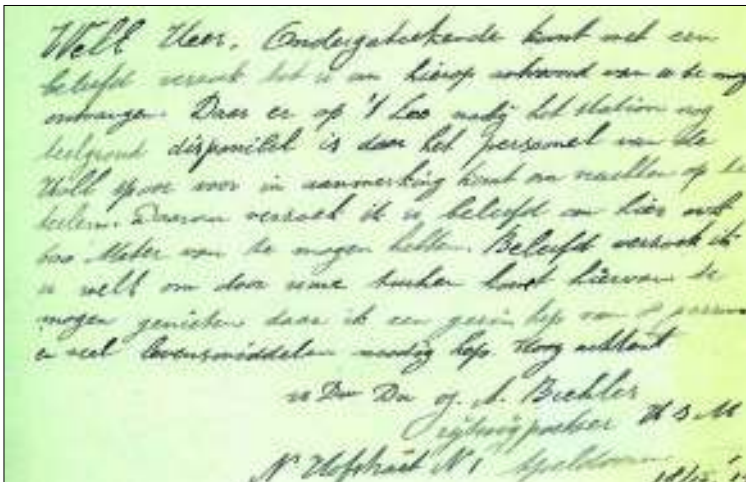 WelE Heer, Ondergeteekende komt met een
beleefd verzoek tot u om hierop antwoord van u te mog
ontvangen. Daar er op 't Loo nabij het station nog
teelgrond disponibel is daar het personeel van de
Holl spoor voor in aanmerking komt om vruchten op te
teelen. Daarom verzoek ik u beleefd om hier ook
600 Meter van te mogen hebben. Beleefd verzoek ik
u welE om door uwe tusschen komst hiervan te
mogen genieten daar ik een gezin heb van 8 personen
en veel levensmiddelen noodig heb. Hoog achtent
u Dw Dn g. A. Buchler
rijtuigpoetser H S M
Nw Hofstraat N 1 Apeldoorn
18/12